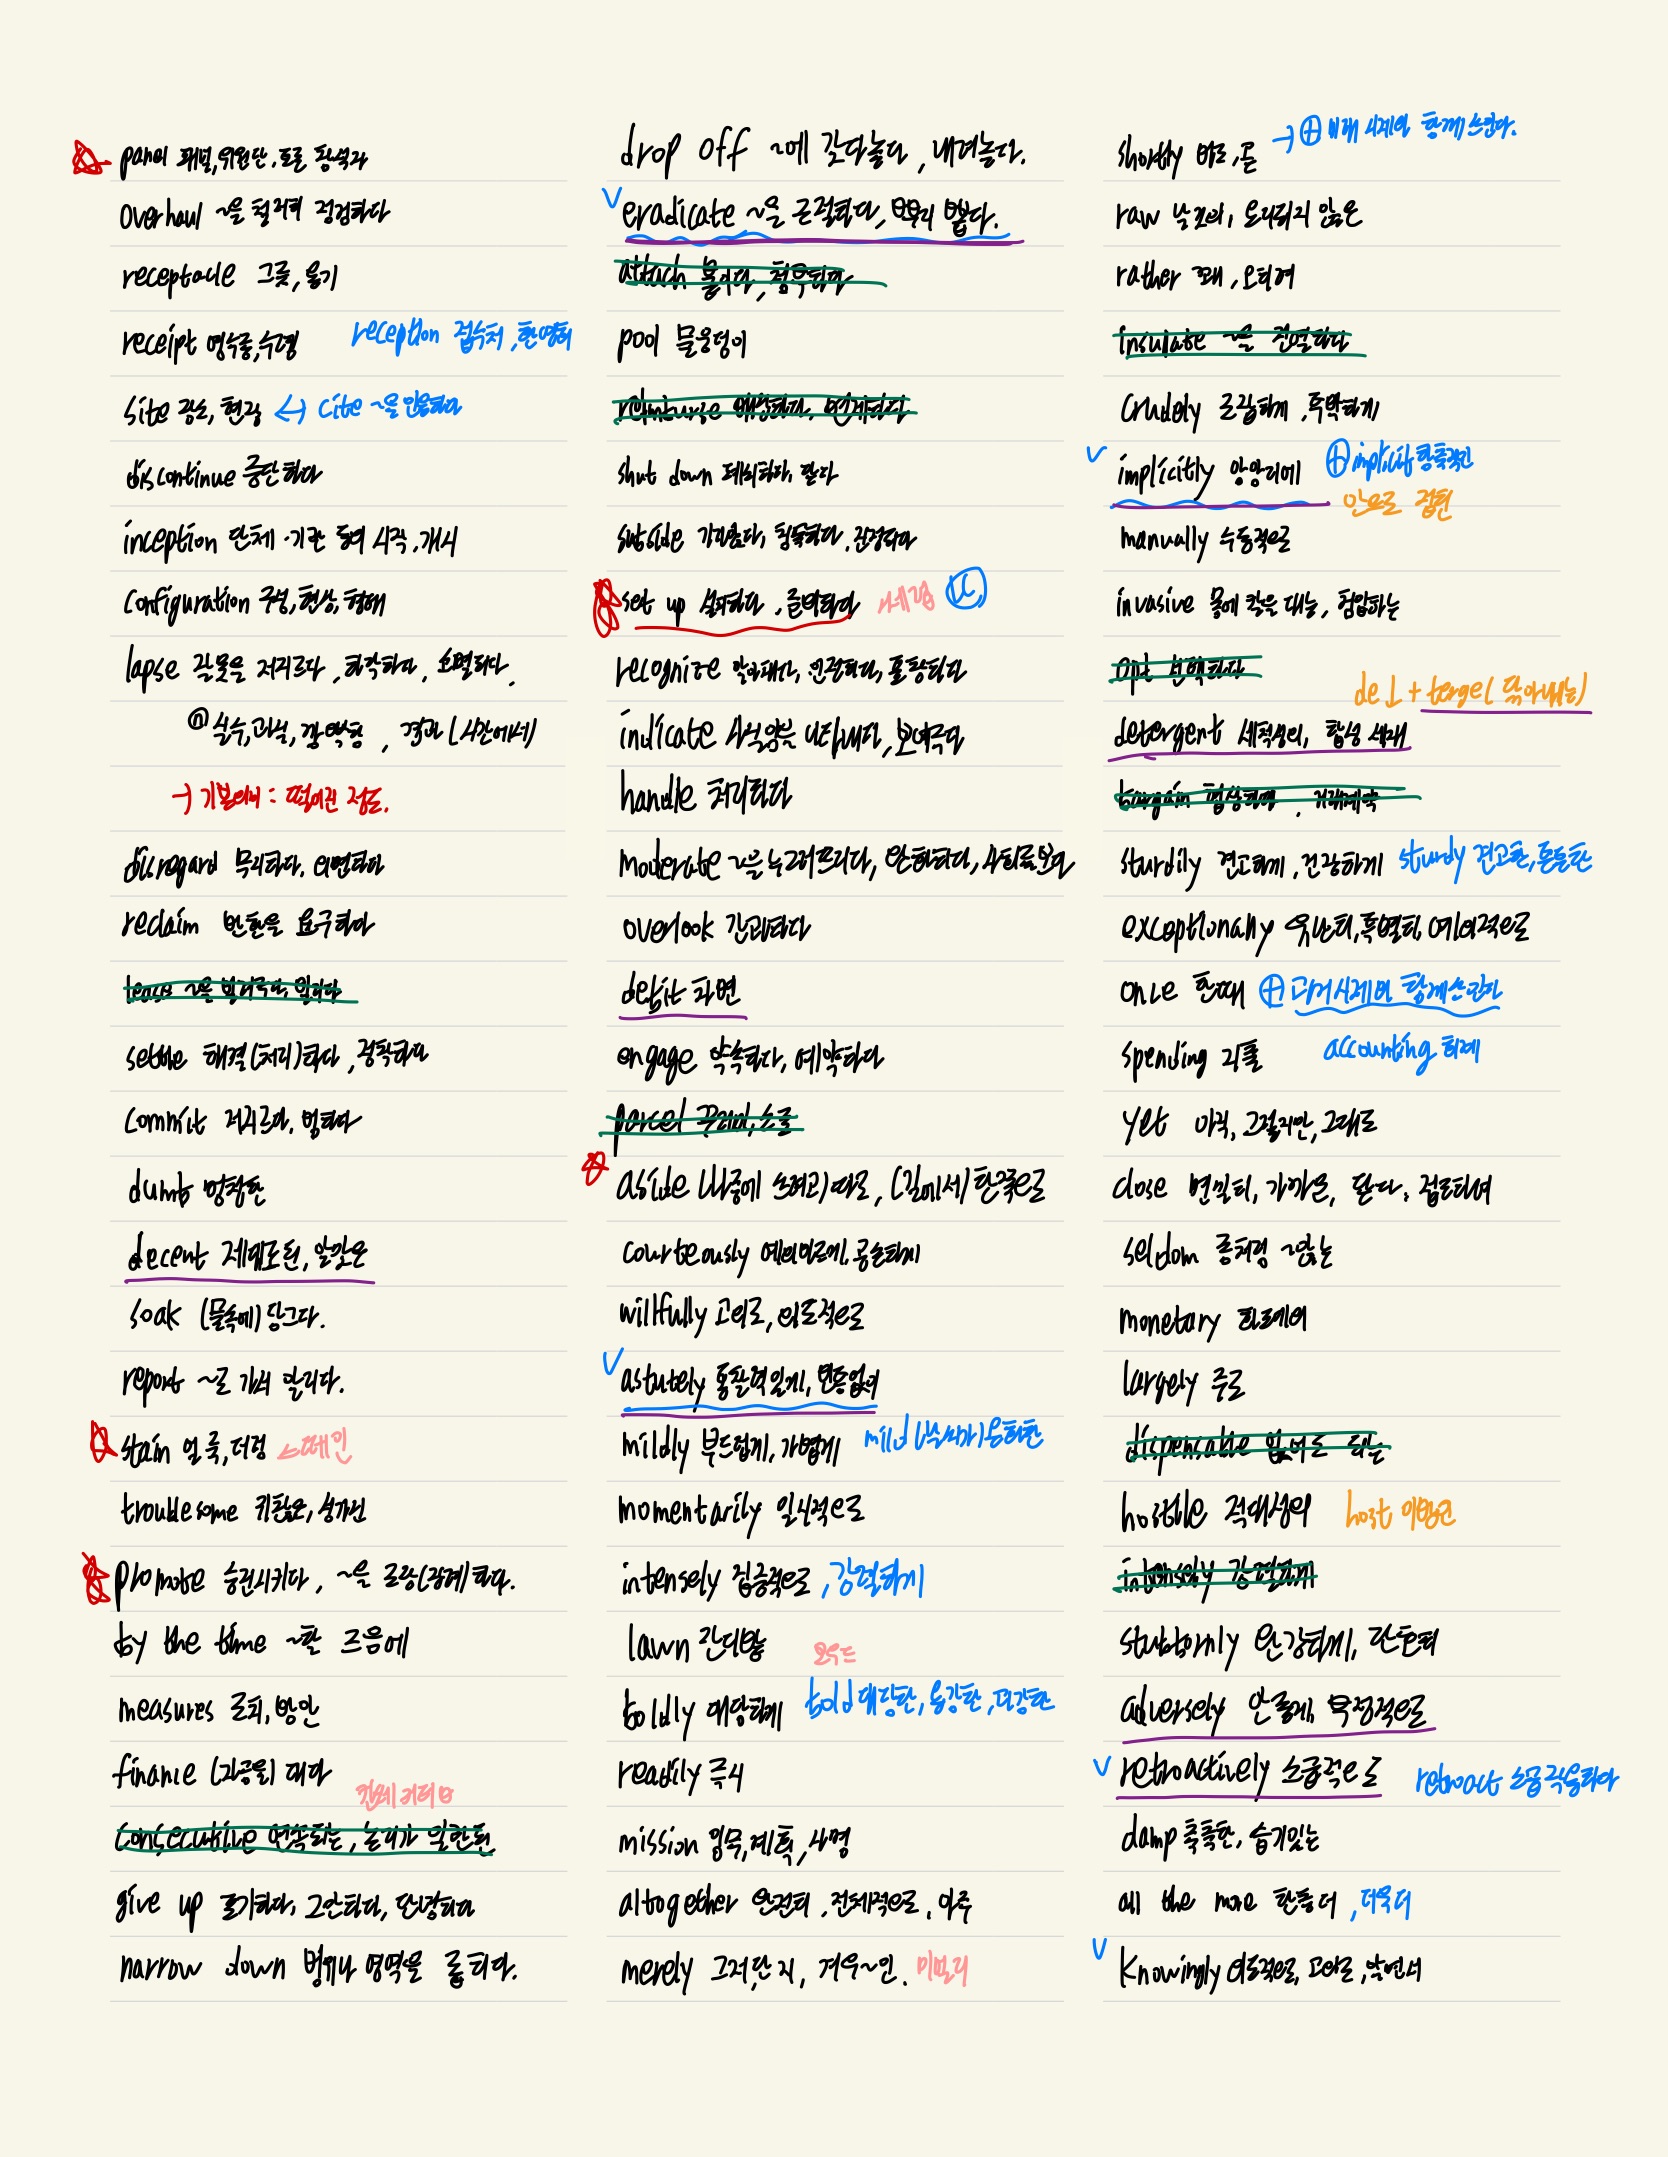 panel 패널, 위원단, 토론 참석자
overhaul ~을 철저히 점검하다
receptacle 그릇, 용기
receipt 영수증, 수령 reception 접수처, 환영회
site 장소, 현장 ↔ cite ~을 인용하다
discontinue 중단하다
inception 단체·기관 등의 시작, 개시
configuration 구성, 형상, 형태
lapse 잘못을 저지르다, 하락하다, 소멸되다.
ⓝ 실수, 과실, 경과 (시간에서)
→ 기본의미: 떨어진 정도.
disregard 무시하다, 외면하다
reclaim 반환을 요구하다
lease ~을 빌려주다, 빌리다
settle 해결(처리)하다, 정착하다
commit 저지르다, 범하다
dumb 멍청한
decent 제대로된, 알맞은
soak (물속에) 담그다.
report ~로 가서 알리다.
stain 얼룩, 더럼
troublesome 귀찮은, 성가신
promote 승진시키다, ~을 조장(장려)하다.
by the time ~할 즈음에
measures 조치, 방안
finance (자금을) 대다
consecutive 연속되는, 논리가 일관된
give up 포기하다, 그만하다, 단념하다
narrow down 범위나 영역을 좁히다.
drop off ~에 갖다놓다, 내려놓다.
eradicate ~을 근절하다, 뿌리 뽑다.
attach 붙이다, 첨부하다
pool 물웅덩이
reimburse 배상하다, 변제하다
shut down 폐쇄하다, 닫다
subside 가라앉다, 침몰하다, 진정되다
set up 설치하다, 준비하다 세럽 LC
recognize 알아채다, 인정하다, 표창하다
indicate 사실 등을 나타내다, 보여주다
handle 처리하다
moderate ~을 누그러뜨리다, 완화하다, 사회를 보다
overlook 간과하다
debit 차변
engage 약속하다, 예약하다
parcel 꾸러미, 소포
aside (나중에 쓰려고) 따로, (길에서) 한쪽으로
courteously 예의바르게, 공손하게
willfully 고의로, 의도적으로
astutely 통찰력있게, 빈틈없이
mildly 부드럽게, 가볍게 mild 온화한
momentarily 일시적으로
intensely 집중적으로, 강렬하게
lawn 잔디밭
boldly 대담하게 bold 대담한, 용감한, 과감한
readily 즉시
mission 임무, 계획, 사명
altogether 완전히, 전체적으로, 아주
merely 그저, 단지, 겨우~인. 미얼리
shortly 바로, 곧 → ⊕ 미래 시제와 함께 쓰인다.
raw 날것의, 요리되지 않은
rather 꽤, 오히려
insulate ~을 단열하다
crudely 조잡하게, 투박하게
implicitly 암암리에 ⊕ implicit 함축적인
안으로 접힌
manually 수동적으로
invasive 몸에 칼을 대는, 침입하는
opt 선택하다
de↓ + terge( 닦아내는)
detergent 세척성의, 합성 세제
bargain 협상하다, 거래계약
sturdily 견고하게, 건강하게 sturdy 견고한, 튼튼한
exceptionally 유난히, 특별히, 예외적으로
once 한때 ⊕ 과거시제와 함께쓰인다
spending 지출 accounting 회계
yet 아직, 그렇지만, 그래도
close 면밀히, 가까운, 닫다, 접근하여
seldom 좀처럼 ~않는
monetary 화폐의
largely 주로
dispensable 없어도 되는
hostile 적대성의 host 이방인
intensely 강렬하게
stubbornly 완강하게, 단호히
adversely 안좋게, 부정적으로
retroactively 소급적으로 retroact 소급 적용하다
damp 축축한, 습기있는
all the more 한층 더, 더욱더
knowingly 의도적으로, 고의로, 알면서